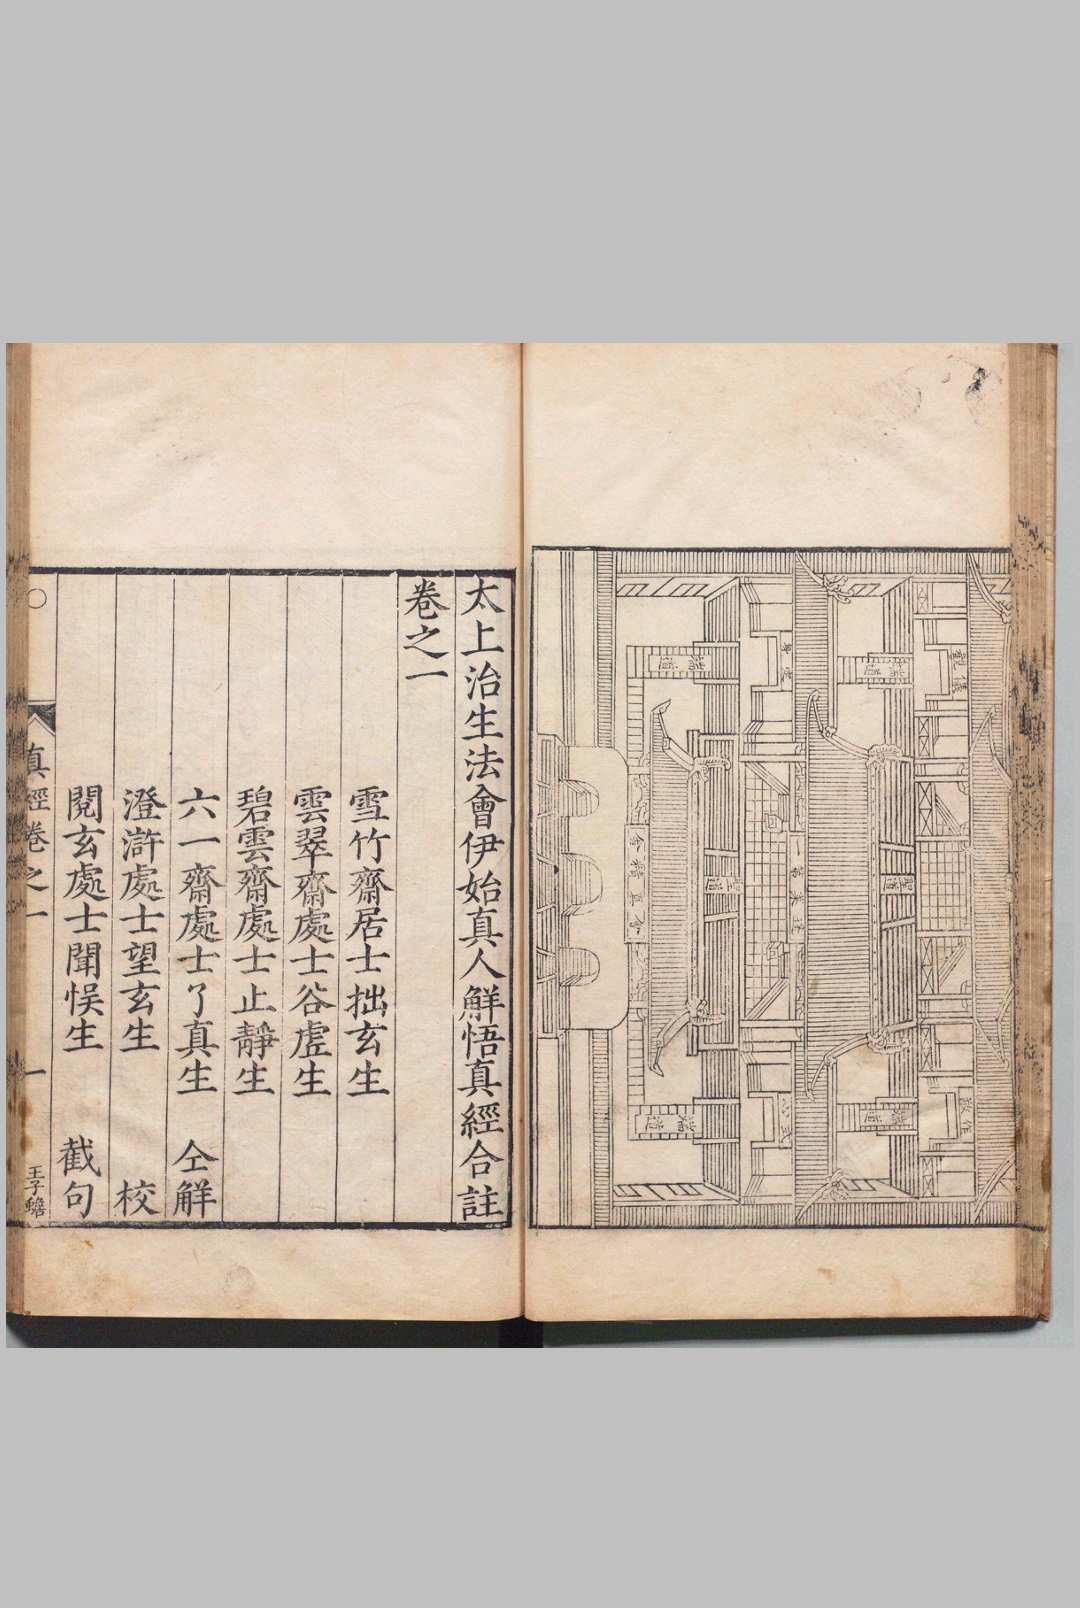 太上治生法會伊始真人解悟真經合註
卷之一
雪竹齋居士拙玄生
雲翠齋處士谷虛生
碧雲齋處士止靜生
六一齋處士了真生　仝解
澄滸處士望玄生　校
閱玄處士聞悞生　截句
真經卷之一　一　王子蟾